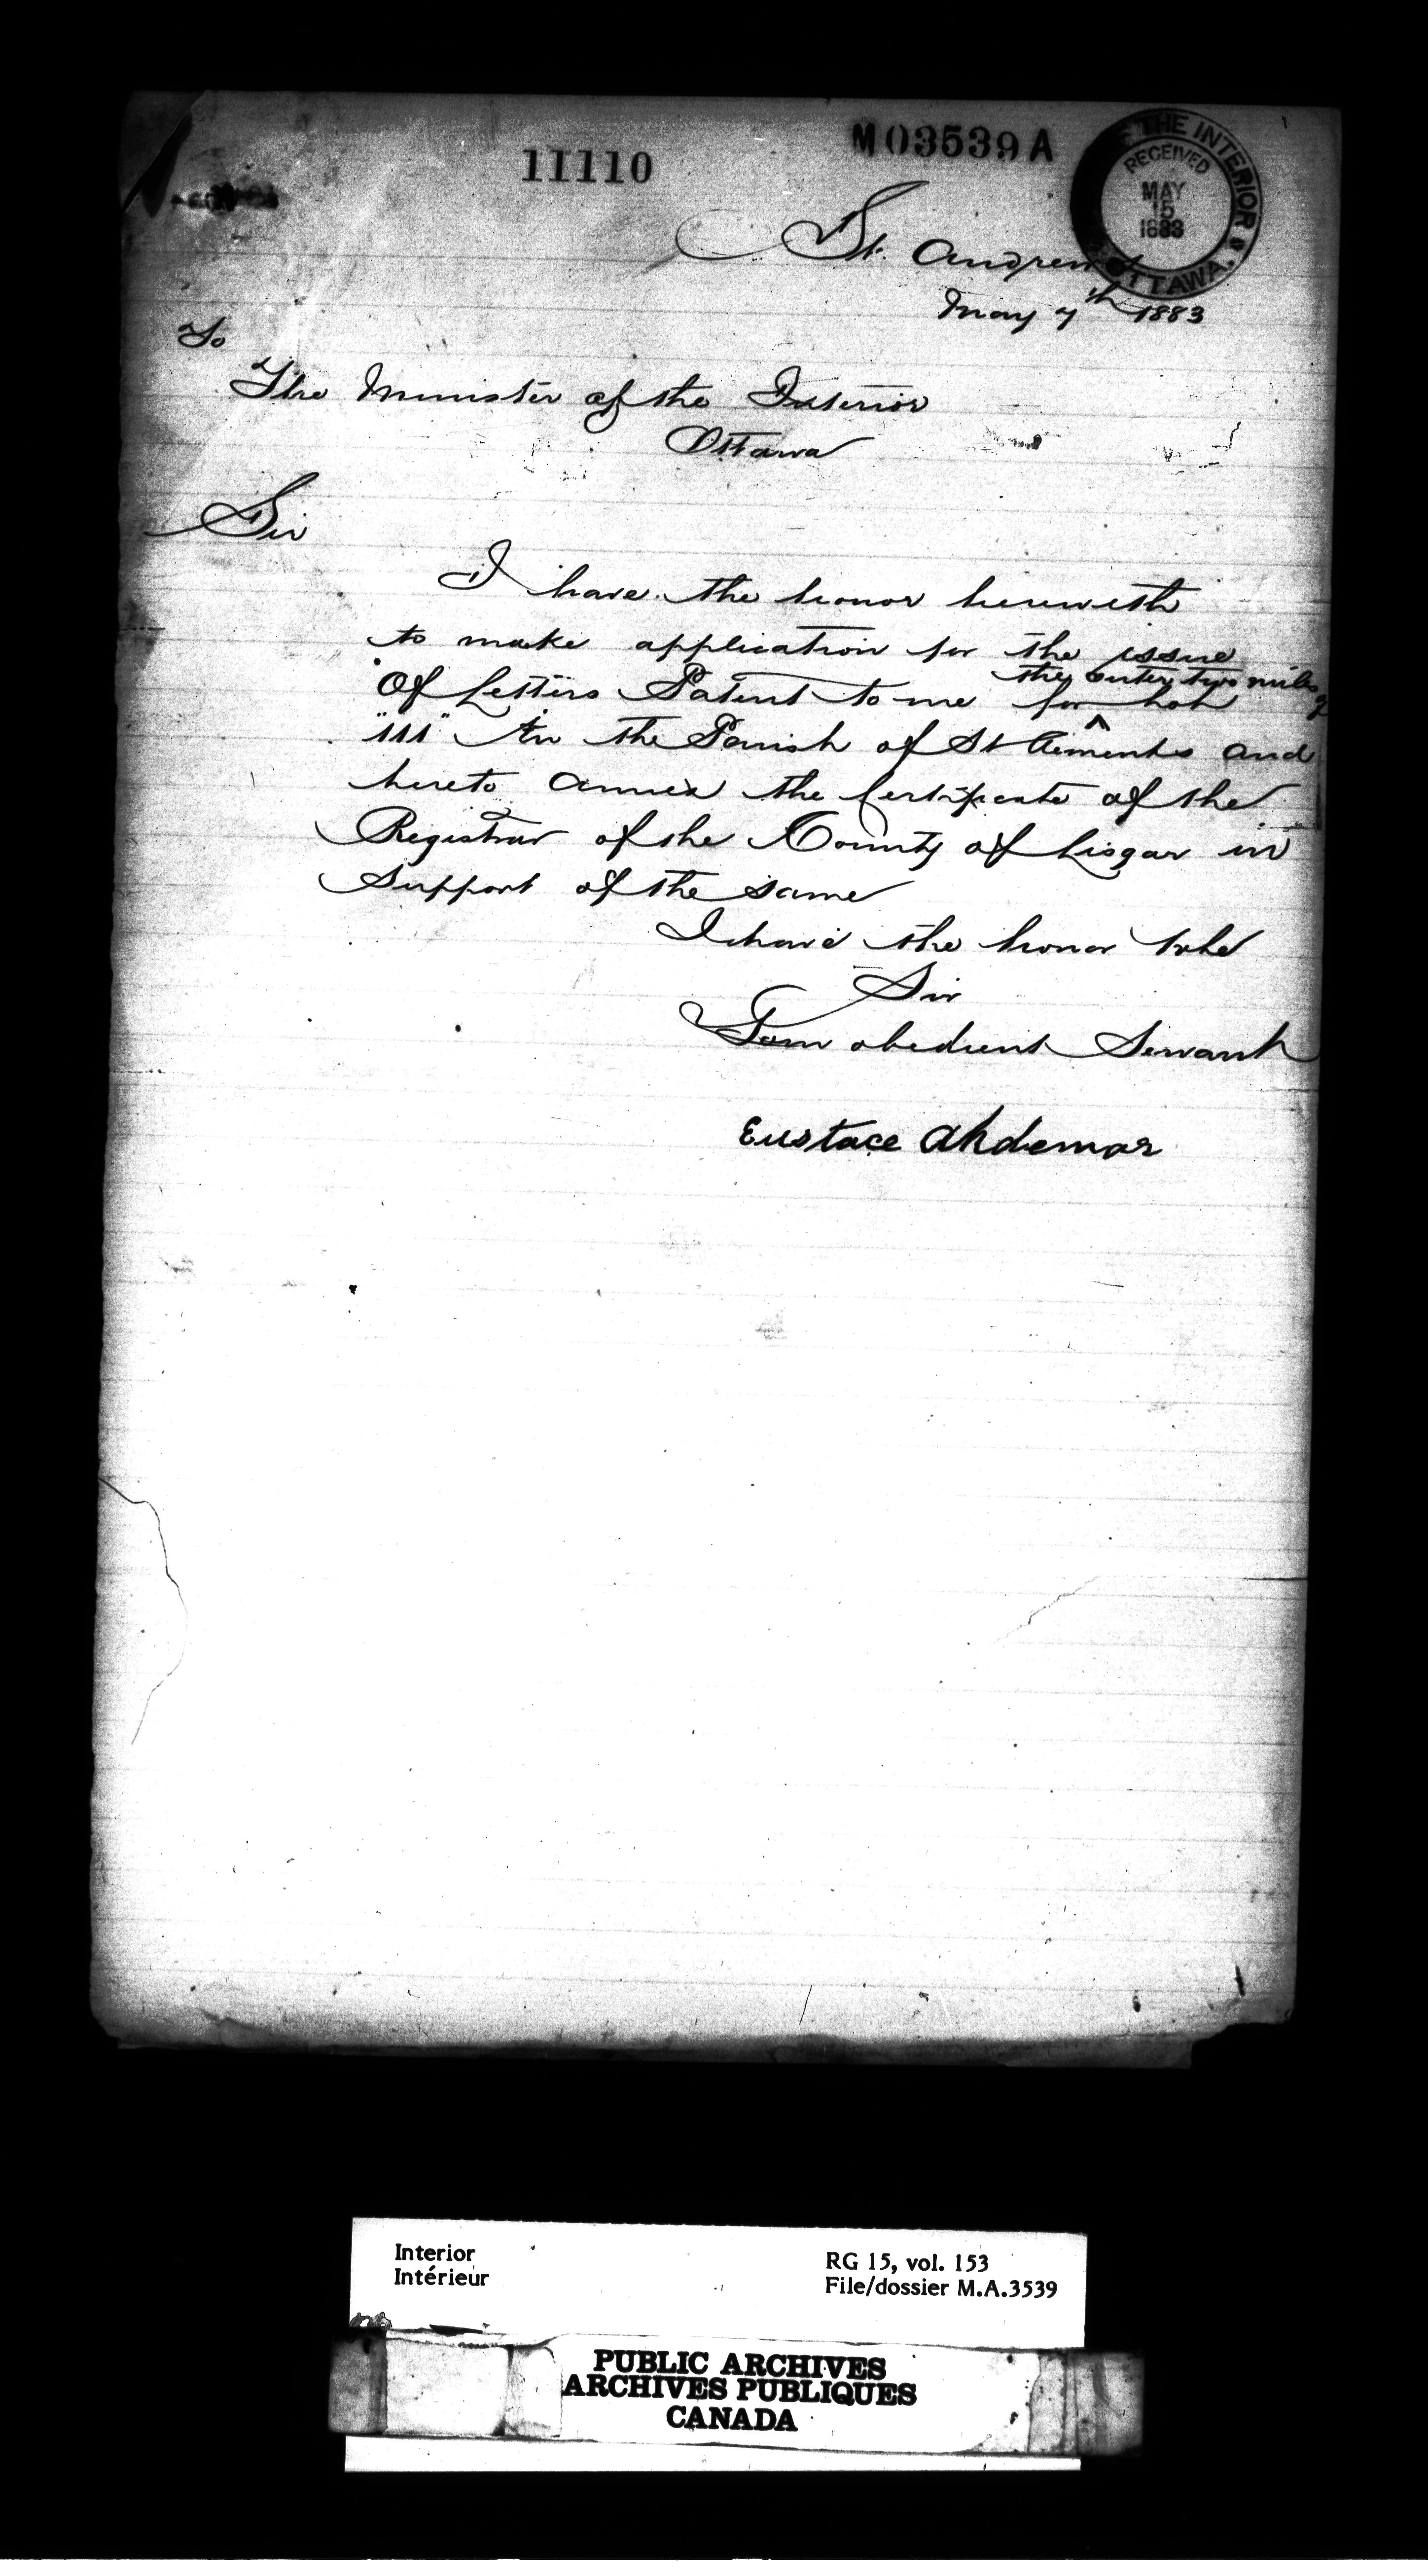 11110
M03539A
THE INTERIOR
RECEIVED
MAY
15
1883
OTTAWA.
St. Andrews
May 7th 1883
To
The Minister of the Interior
Ottawa
Sir
I have the honor herewith
to make application for the issue
the outer two miles of
Of Letters Patent to me for Lot
"111" In the Parish of St Clements and
hereto annex the Certificate of the
Registrar of the County of Lisgar in
Support of the same
I have the honor to be
Sir
Your obedient Servant
Eustace Ahdemar
Interior
Intérieur
RG 15, vol. 153
File/dossier M.A.3539
PUBLIC ARCHIVES
ARCHIVES PUBLIQUES
CANADA